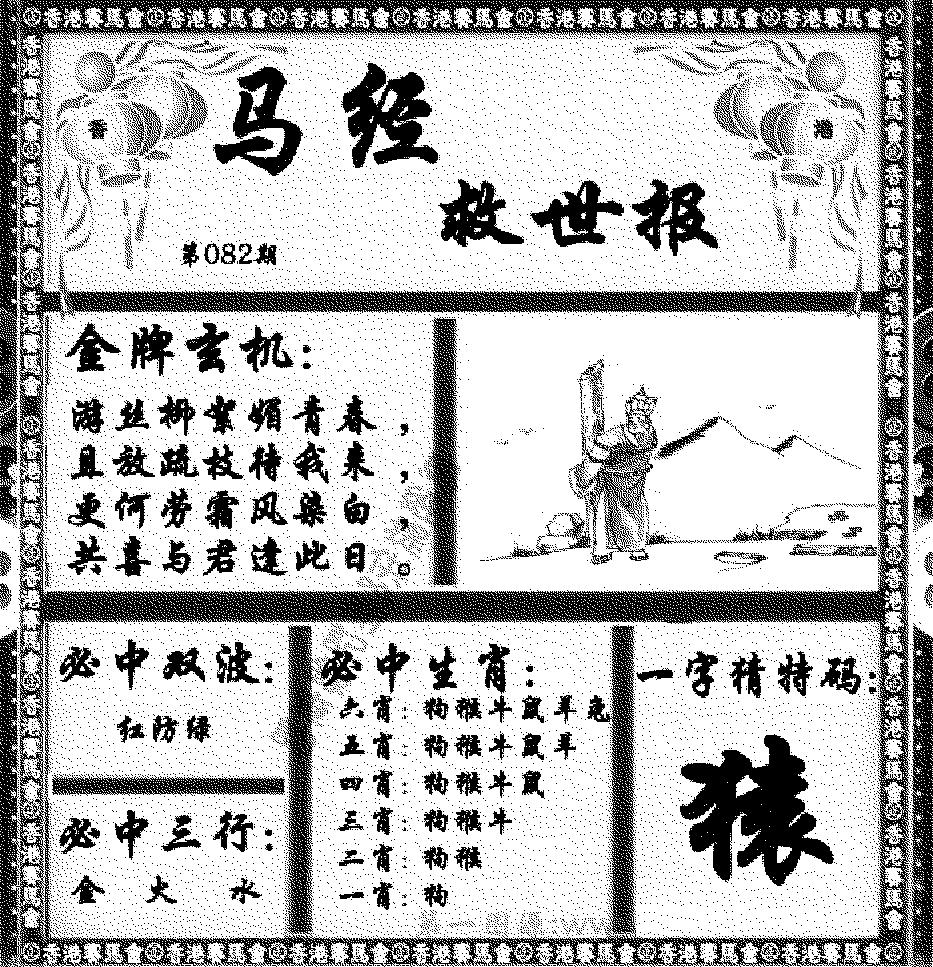 香港赛馬會 香港赛馬會 香港赛馬會 香港赛馬會 香港赛馬會 香港赛馬會 香港赛馬會
香
港
马经
救世报
第082期
金牌玄机:
游丝柳絮媚青春,
且放疏枝待我来,
更何劳霜风染白,
共喜与君逢此日。
必中双波:
红防绿
必中三行:
金 火 水
必中生肖:
六肖:狗猴牛鼠羊兔
五肖:狗猴牛鼠羊
四肖:狗猴牛鼠
三肖:狗猴牛
二肖:狗猴
一肖:狗
一字猜特码:
猿
香港赛馬會 香港赛馬會 香港赛馬會 香港赛馬會 香港赛馬會 香港赛馬會 香港赛馬會